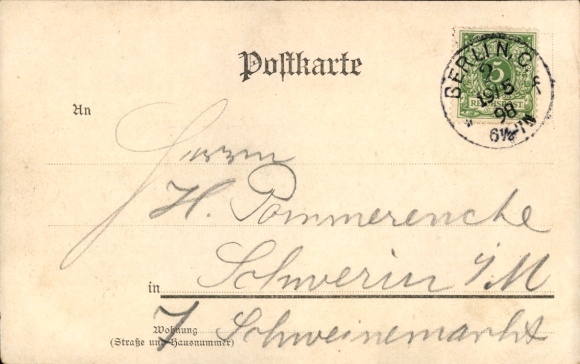 Postkarte
BERLIN. C.
2 f
5
19/5
98
6½-7N
REICHSPOST
An
Herrn
H. Pommerencke
in Schwerin i/M
Wohnung
(Straße und Hausnummer)
7 Schweinemarkt